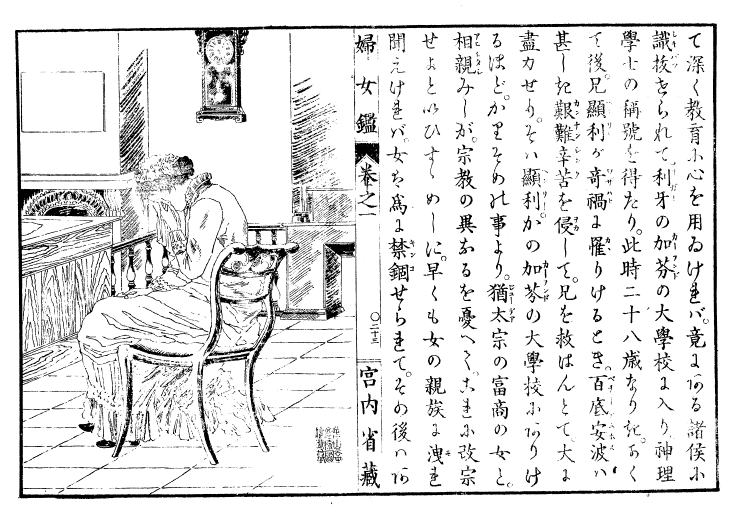 て深く教育に心を用ゐければ。竟にある諸侯に
識抜せられて。利牙の加芬の大學校に入り。神理
學士の稱號を得たり。此時二十八歳なりき。かく
て後。兄顯利が奇禍に罹りけるとき。百底安波は
甚しき艱難辛苦を侵して。兄を救はんとて大に
盡力せり。そは顯利がかの加芬の大學校にありけ
るほど。かりそめの事より。猶太宗の富商の女と。
相親みしが。宗教の異なるを憂へて。これに改宗
せよといひすゝめしに。早くも女の親族に洩れ
聞えければ。女は爲に禁錮せられて。その後はあ
婦女鑑
巻之一
〇二十三
宮内省藏